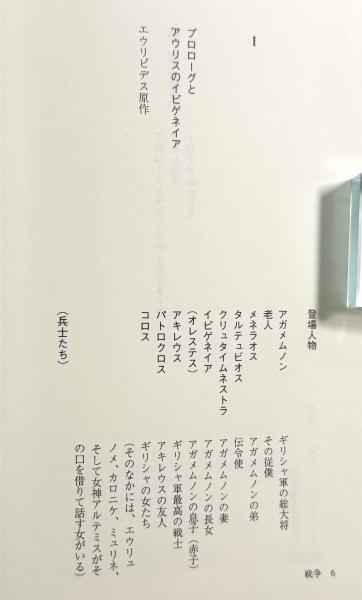 I
プロローグと
アウリスのイピゲネイア
エウリピデス原作
登場人物
アガメムノン ギリシャ軍の総大将
老人 その従僕
メネラオス アガメムノンの弟
タルテュビオス 伝令使
クリュタイムネストラ アガメムノンの妻
イピゲネイア アガメムノンの長女
(オレステス) アガメムノンの息子(赤子)
アキレウス ギリシャ軍最高の戦士
パトロクロス アキレウスの友人
コロス ギリシャの女たち
(そのなかには、エウリュ
ノメ、カロニケ、ミュリネ、
そして女神アルテミスがそ
の口を借りて話す女がいる)
(兵士たち)
戦争 6